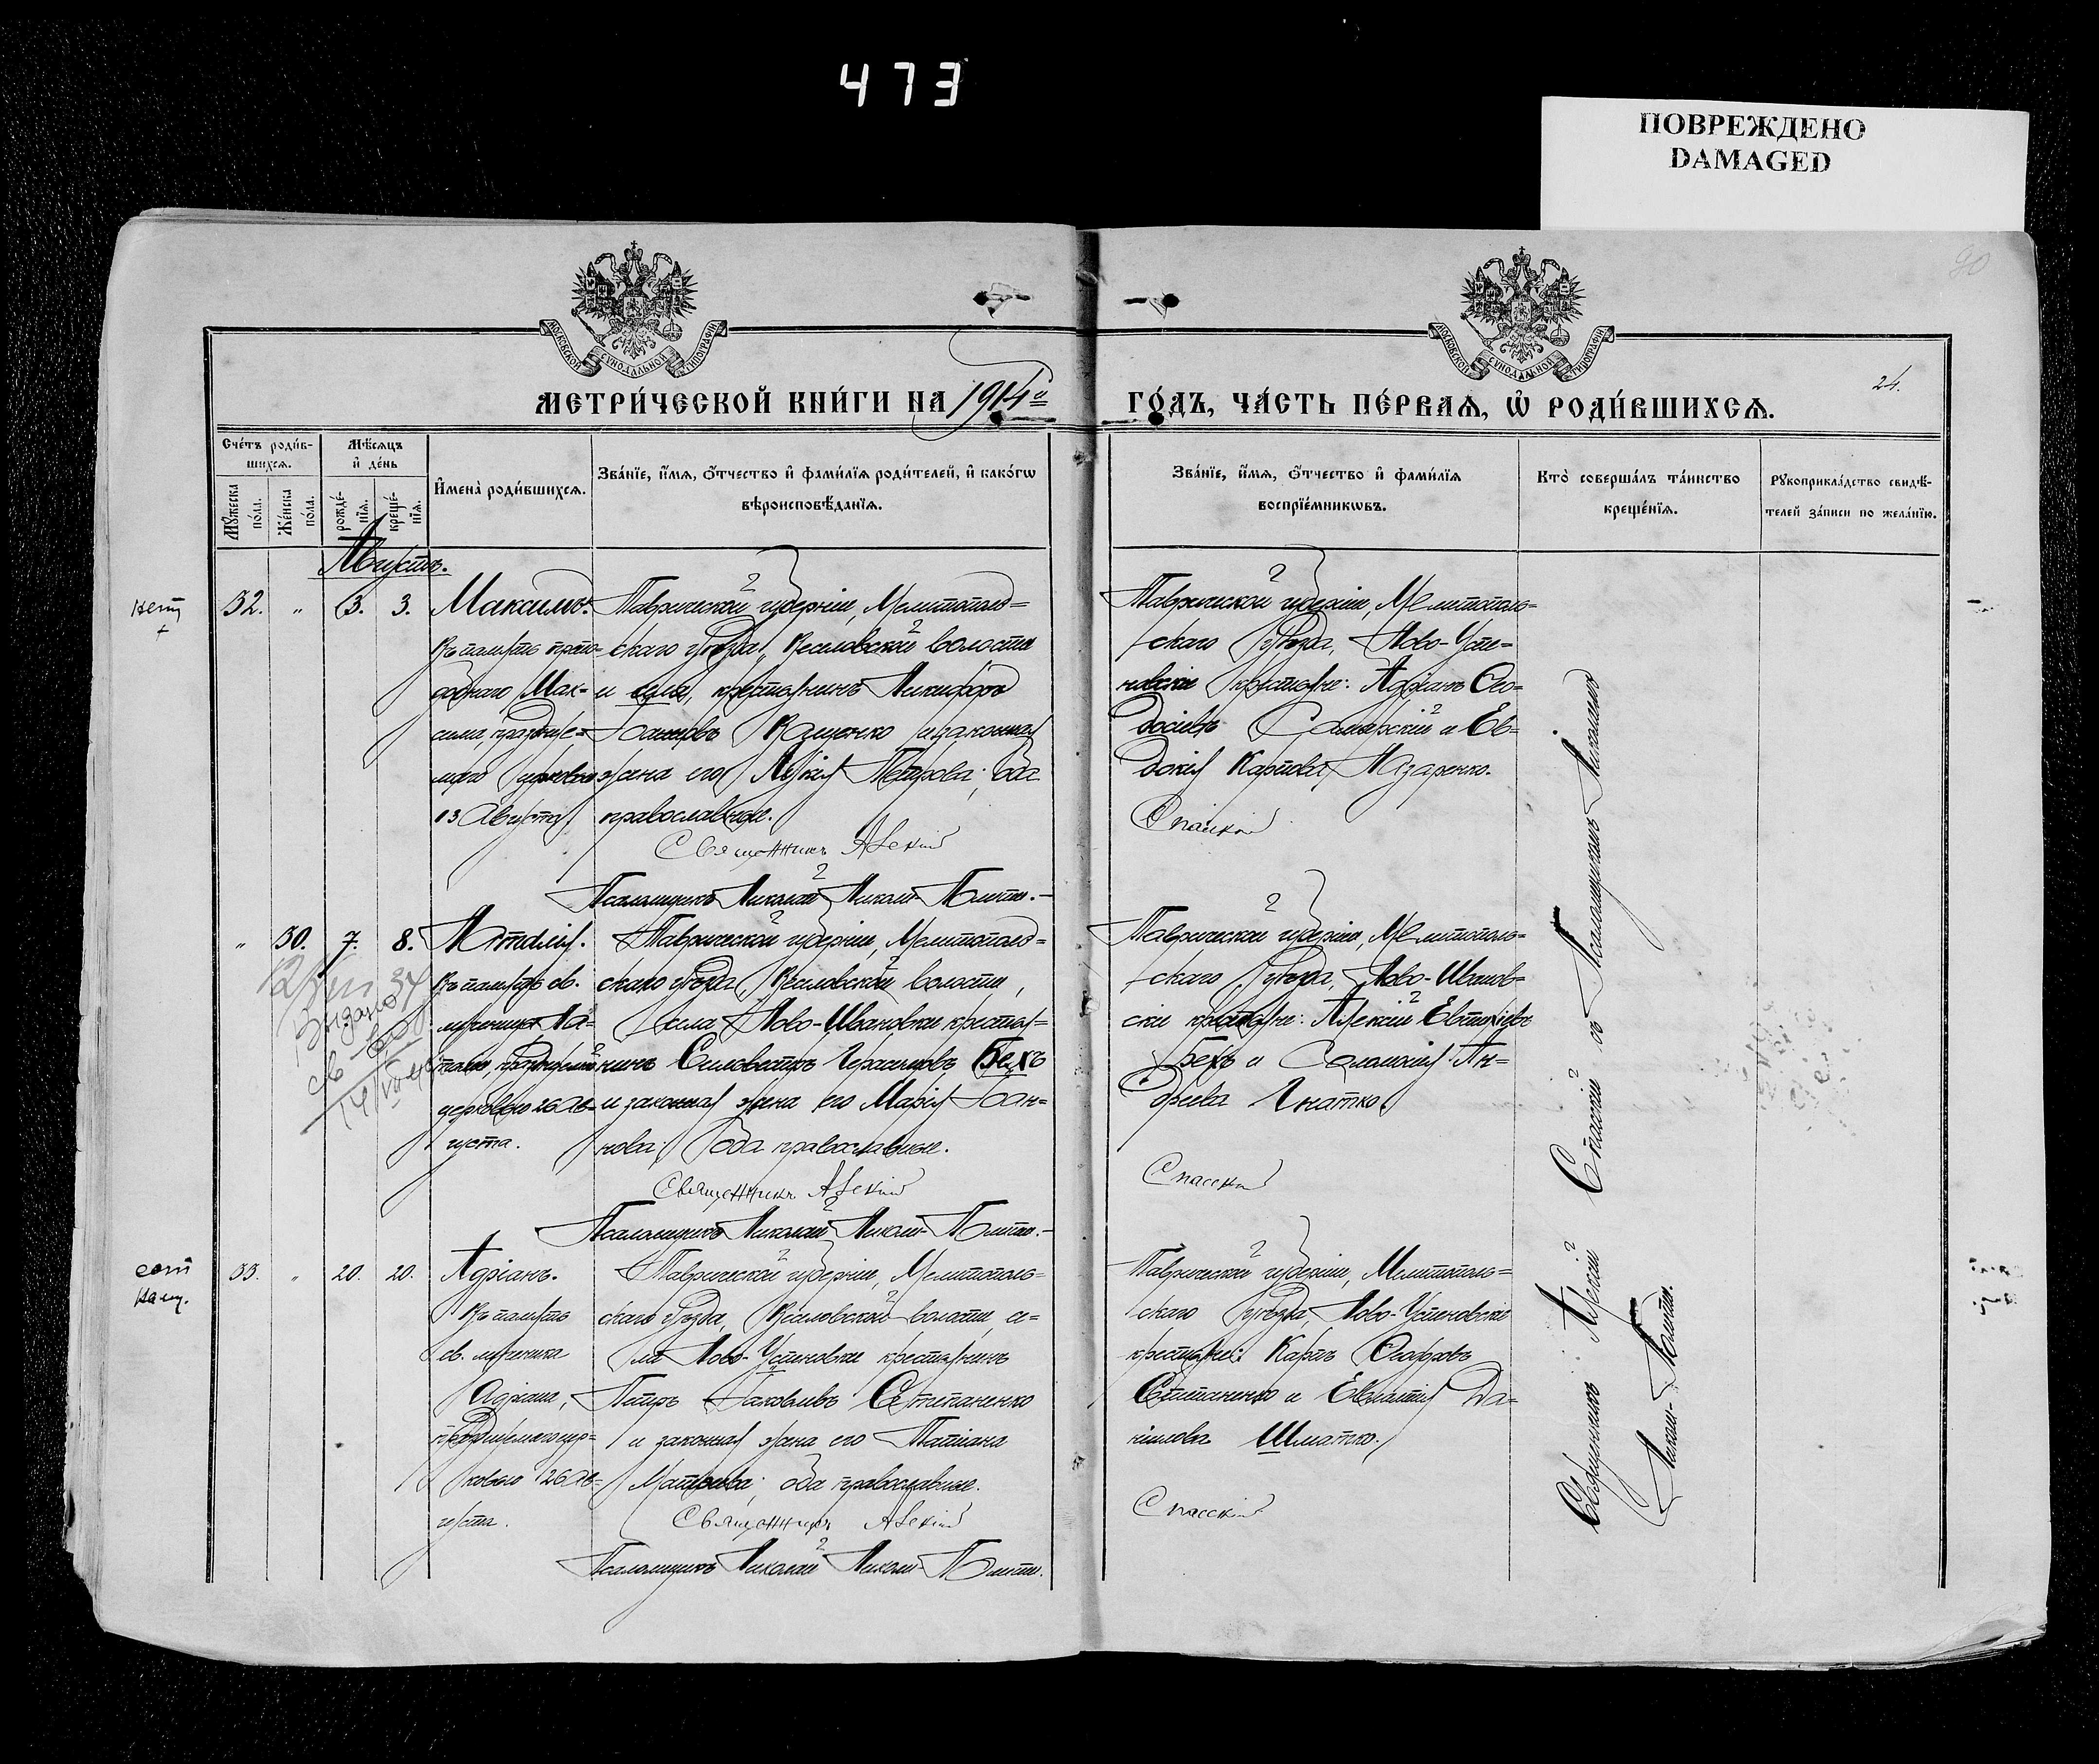 473
ПОВРЕЖДЕНО
DAMAGED
90
МОСКОВСКОЙ СУНОДАЛЬНОЙ ТИПОГРАФІИ
МОСКОВСКОЙ СУНОДАЛЬНОЙ ТИПОГРАФІИ
МЕТРИ́ЧЕСКОЙ КНИ́ГИ НА 1914й
ГО́ДЪ, ЧА́СТЬ ПЕ́РВАѦ, Ѡ҆ РОДИ́ВШИХСѦ.
24.
Сче́тъ роди́в-
шихсѧ.
Мѣ́сѧцъ
и҆ де́нь
Мꙋ́жеска по́ла.
Же́нска по́ла.
рожде́-нїѧ.
креще́-нїѧ.
И҆мена̀ роди́вшихсѧ.
Зва́нїе, и҆́мѧ, ѻ҆́тчество и҆ фами́лїѧ роди́телей, и҆ како́гѡ
вѣроисповѣ́данїѧ.
Зва́нїе, и҆́мѧ, ѻ҆́тчество и҆ фами́лїѧ
воспрїе́мникѡвъ.
Кто̀ соверша́лъ та́инство
креще́нїѧ.
Рꙋкоприкла́дство свидѣ́-
телей за́писи по жела́нїю.
Августъ.
32. „ 3. 3. Максимъ.
Въ память препо-
добнаго Мак-
сима, празднуе-
маго церковью
13 Августа
Таврической губерніи, Мелитополь=
скаго уѣзда, Веселовской волости
и села, крестьянинъ Никифоръ
Іоанновъ Ващенко и законная
жена его Лукія Петрова; оба
православные.
Священникъ Алексій
Псаломщикъ Николай Никол-Полит.
Таврической губерніи, Мелитополь=
скаго уѣзда, Ново-Успе=
новскіе крестьяне: Адріанъ Ѳео=
досіевъ Самарскій и Ев=
докія Карпова Назаренко.
Спасскій
„ 30. 7. 8. Наталія.
Въ память св.
мученицы На-
таліи, празднуемой
церковью 26 Ав-
густа.
Выдано
Таврической губерніи, Мелитополь=
скаго уѣзда Веселовской волости,
села Ново-Ивановки крестья=
нинъ Силовестръ Герасимовъ Бехъ
и законная жена его Марія Іоан=
нова; оба православные.
Священникъ Алексій
Псаломщикъ Николай Никол-Полит.
Таврической губерніи, Мелитополь=
скаго уѣзда, Ново-Иванов=
скіе крестьяне: Алексій Евтихіевъ
Бехъ и Соломонія Ан=
дреева Гнатко.
Спасскій
33. „ 20. 20. Адріанъ.
Въ память
св. мученика
Адріана,
празднуемаго цер=
ковью 26 Ав=
густа.
Таврической губерніи, Мелитополь=
скаго уѣзда, Веселовской волости, се=
ла Ново-Успеновки крестьянинъ
Петръ Іаковлевъ Степаненко
и законная жена его Татіана
Матвеева; оба православные.
Священникъ Алексій
Псаломщикъ Николай Никол-Полит.
Таврической губерніи, Мелитополь=
скаго уѣзда, Ново-Успеновскіе
крестьяне: Карпъ Ѳеодоровъ
Степаненко и Евлампія Да=
ніилова Шматко.
Спасскій
Священникъ Алексій Спасскій съ Псаломщикомъ Николаемъ
Никол-Полит.